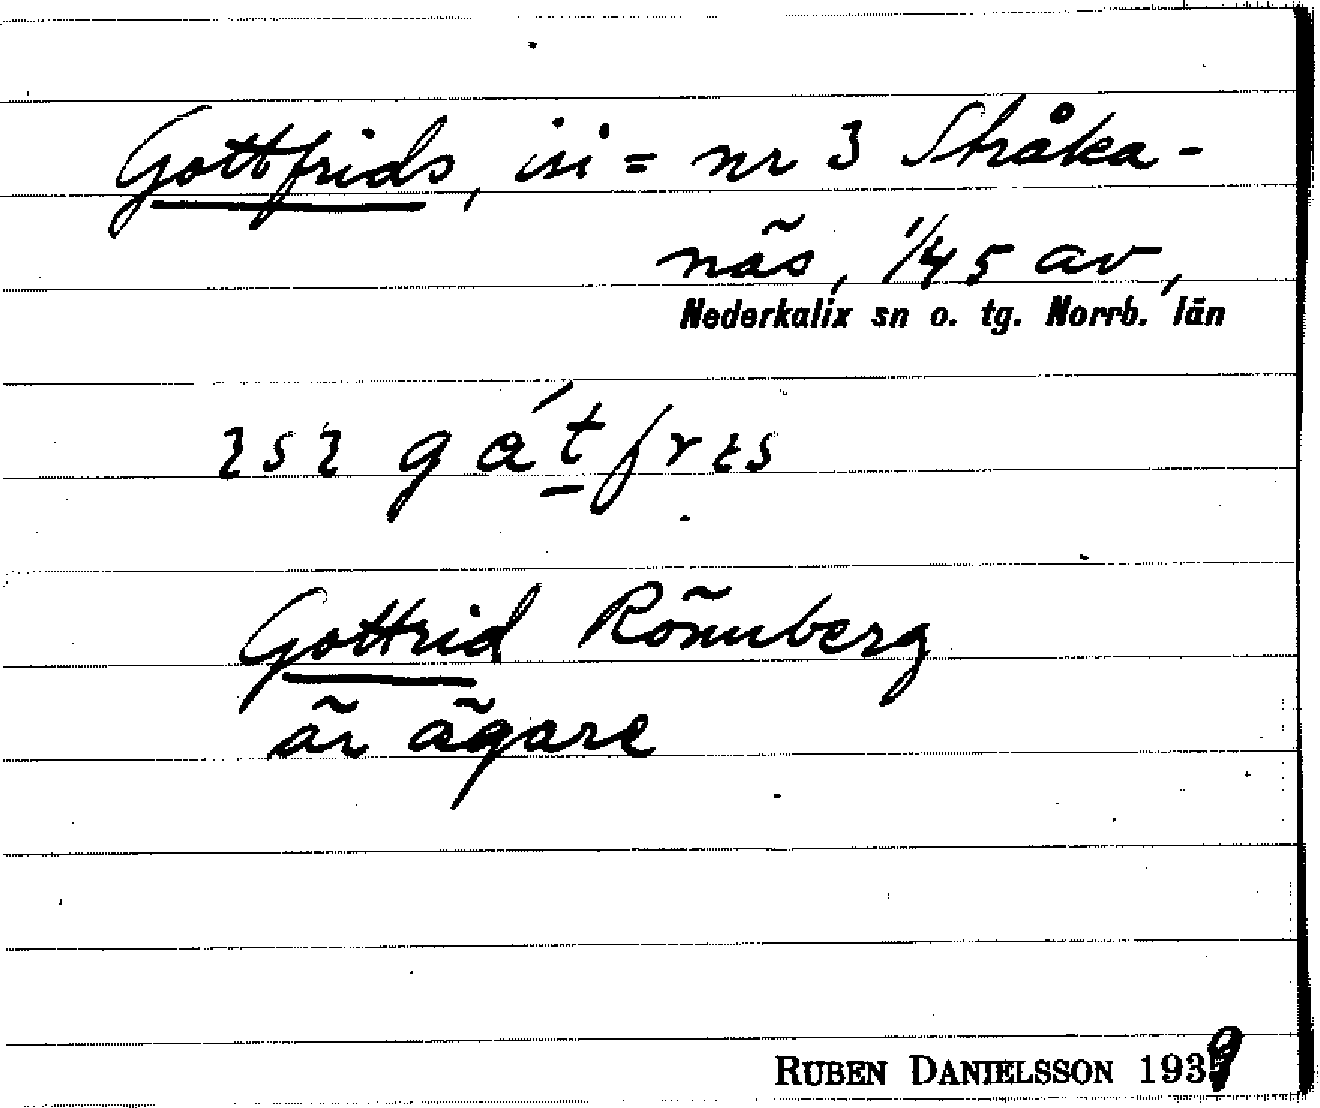 Gottfrids, in = nr 3 Stråka-
näs, 1/45 av,
Nederkalix sn o. tg. Norrb. län
gátfrs
Gottfrid Rönnberg
är ägare
RUBEN DANIELSSON 1939